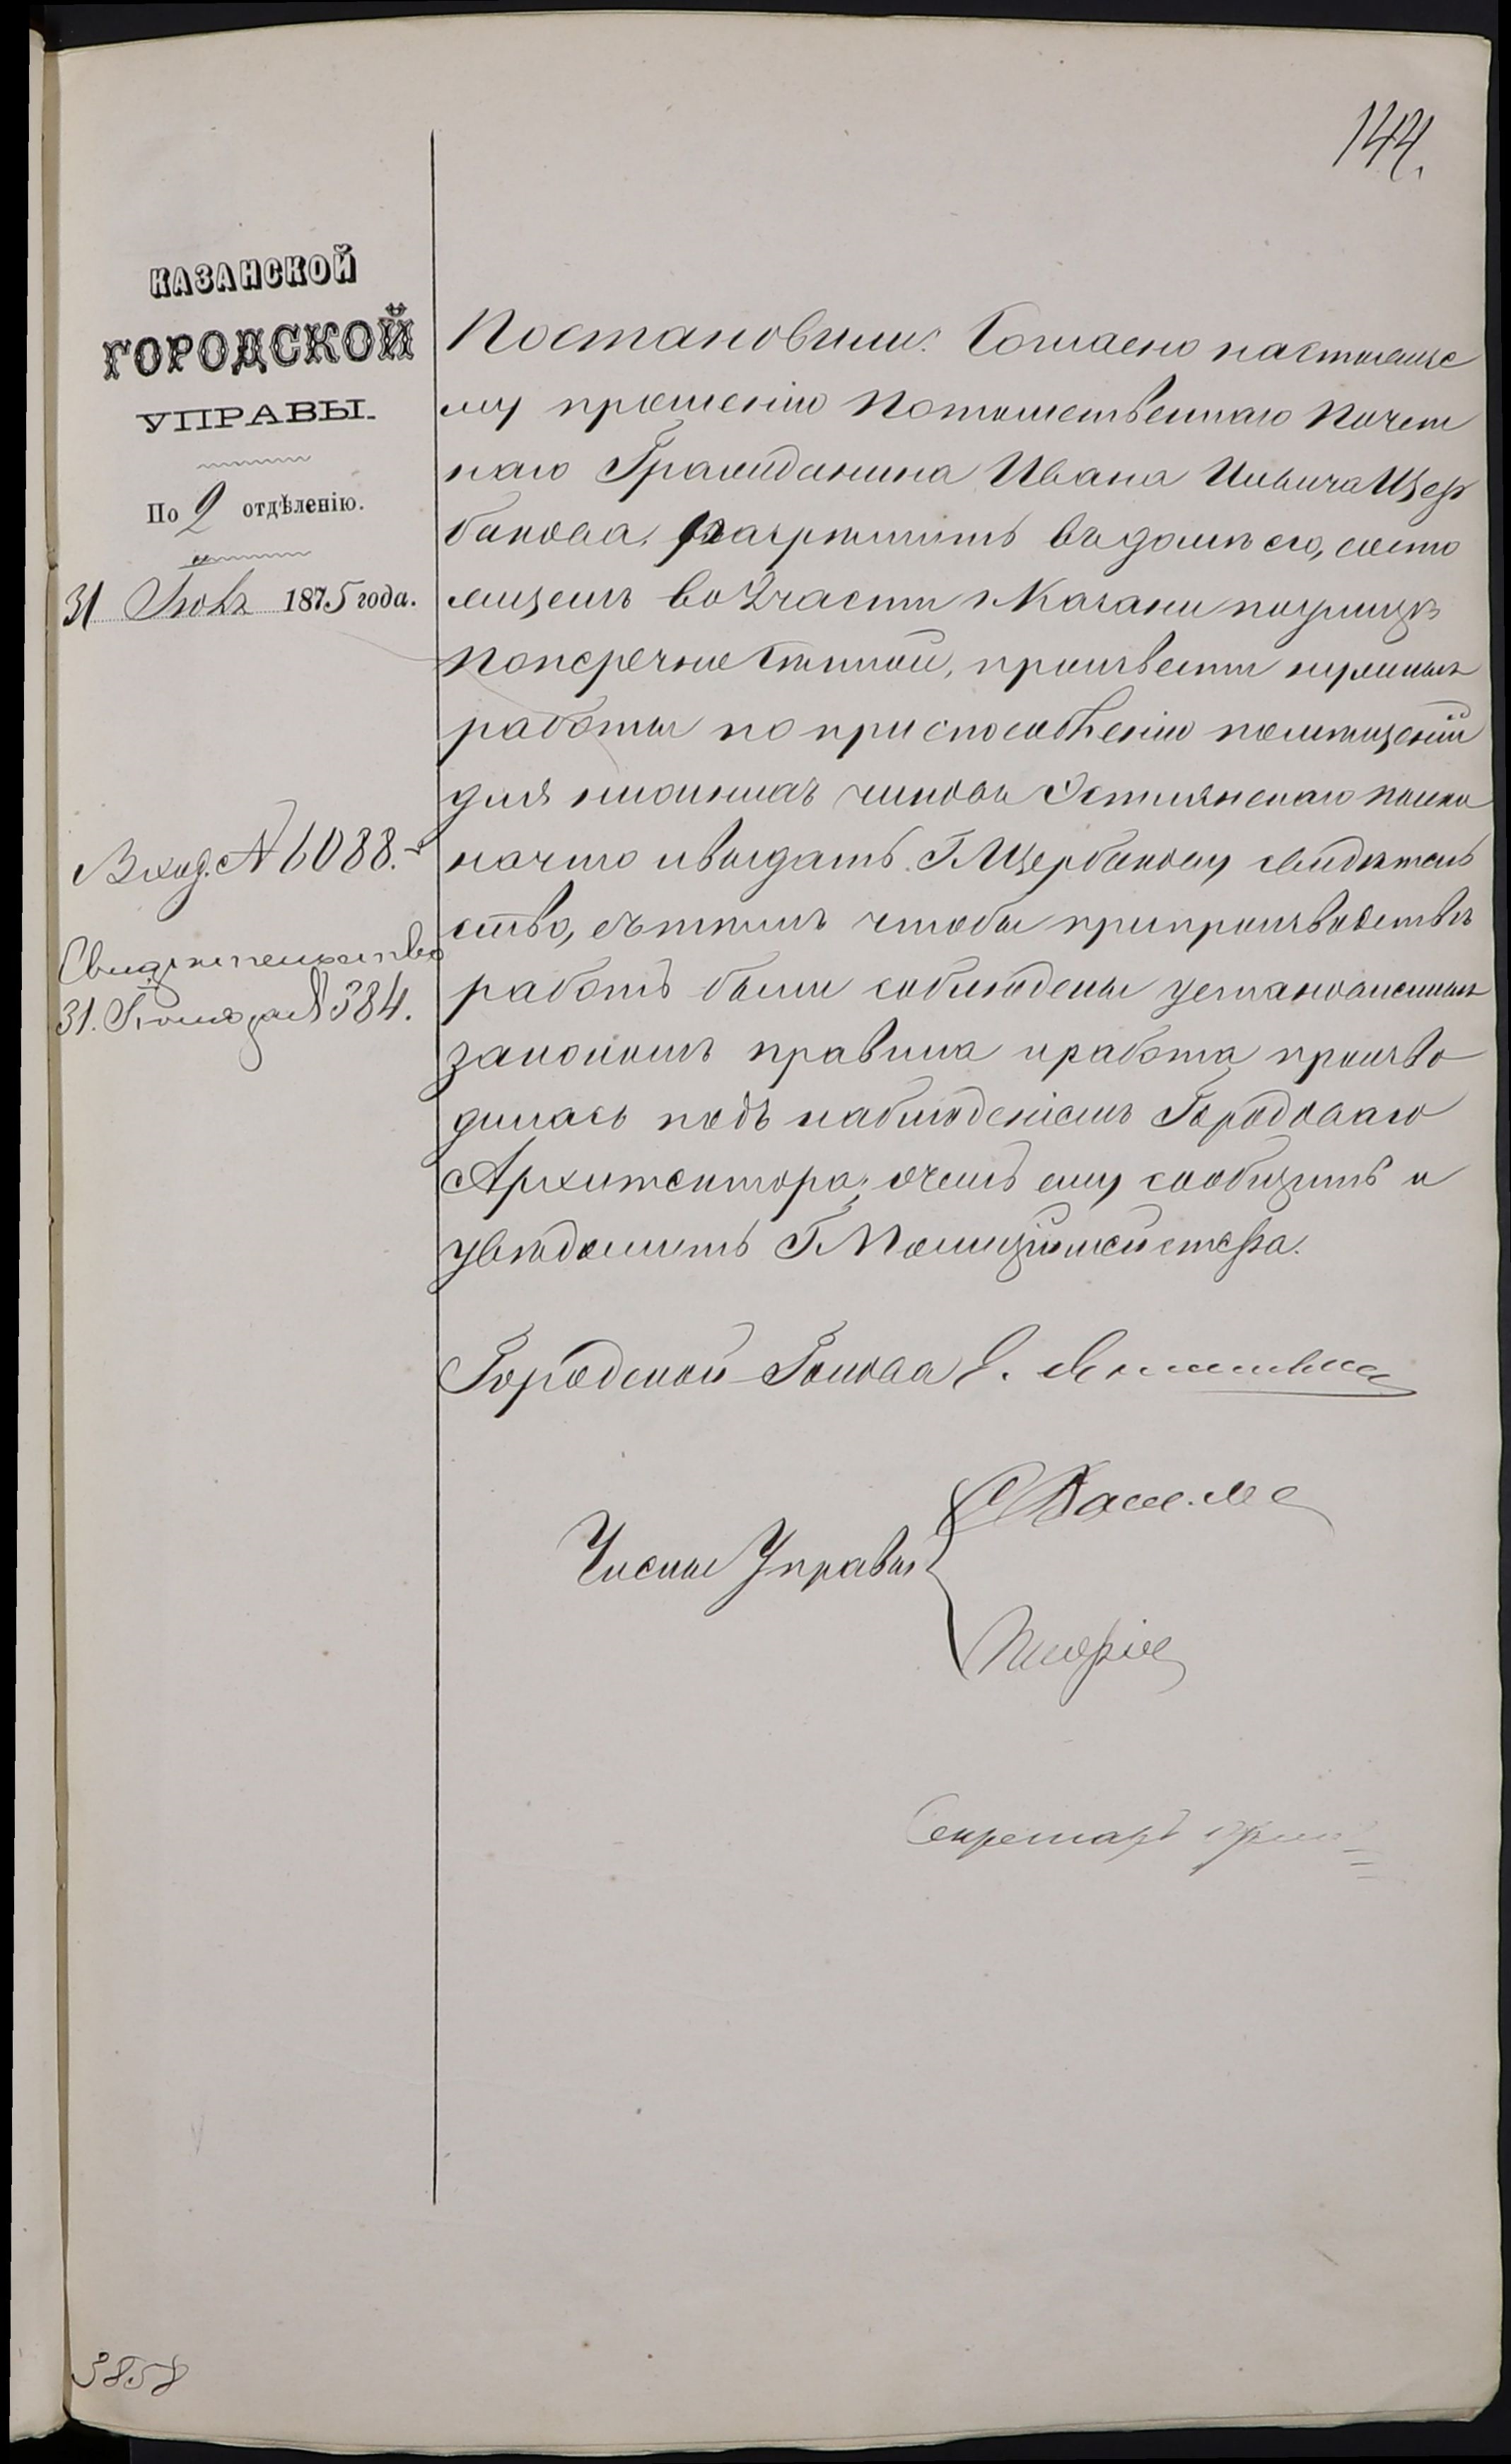 144.
КАЗАНСКОЙ
ГОРОДСКОЙ
УПРАВЫ.
По 2 отдѣленію.
31 1875 года.
Вход. № 6088.
Свидетельство
31. за № 384.
Постановили: Согласно настояще
му прошенію Потомственнаго Почет
наго Гражданина Ивана Ильича Щер
бакова, разрѣшить въ домѣ его, состо
ящемъ во 2 части г. Казани по улицѣ
Поперечно произвести нужныя
работы по приспособленію помѣщеній
для нижнихъ чиновъ Эстляндскаго полка
на что и выдать Г. Щербакову свидѣтель
ство, съ тѣмъ чтобы при производствѣ
работъ были соблюдены установленныя
закономъ правила и работа произво
дилась подъ наблюденіемъ Городоваго
Архитектора, о чемъ ему сообщить и
увѣдомить Г. Полиціймейстера.
Городской Голова
Члены Управы
Секретарь
3858